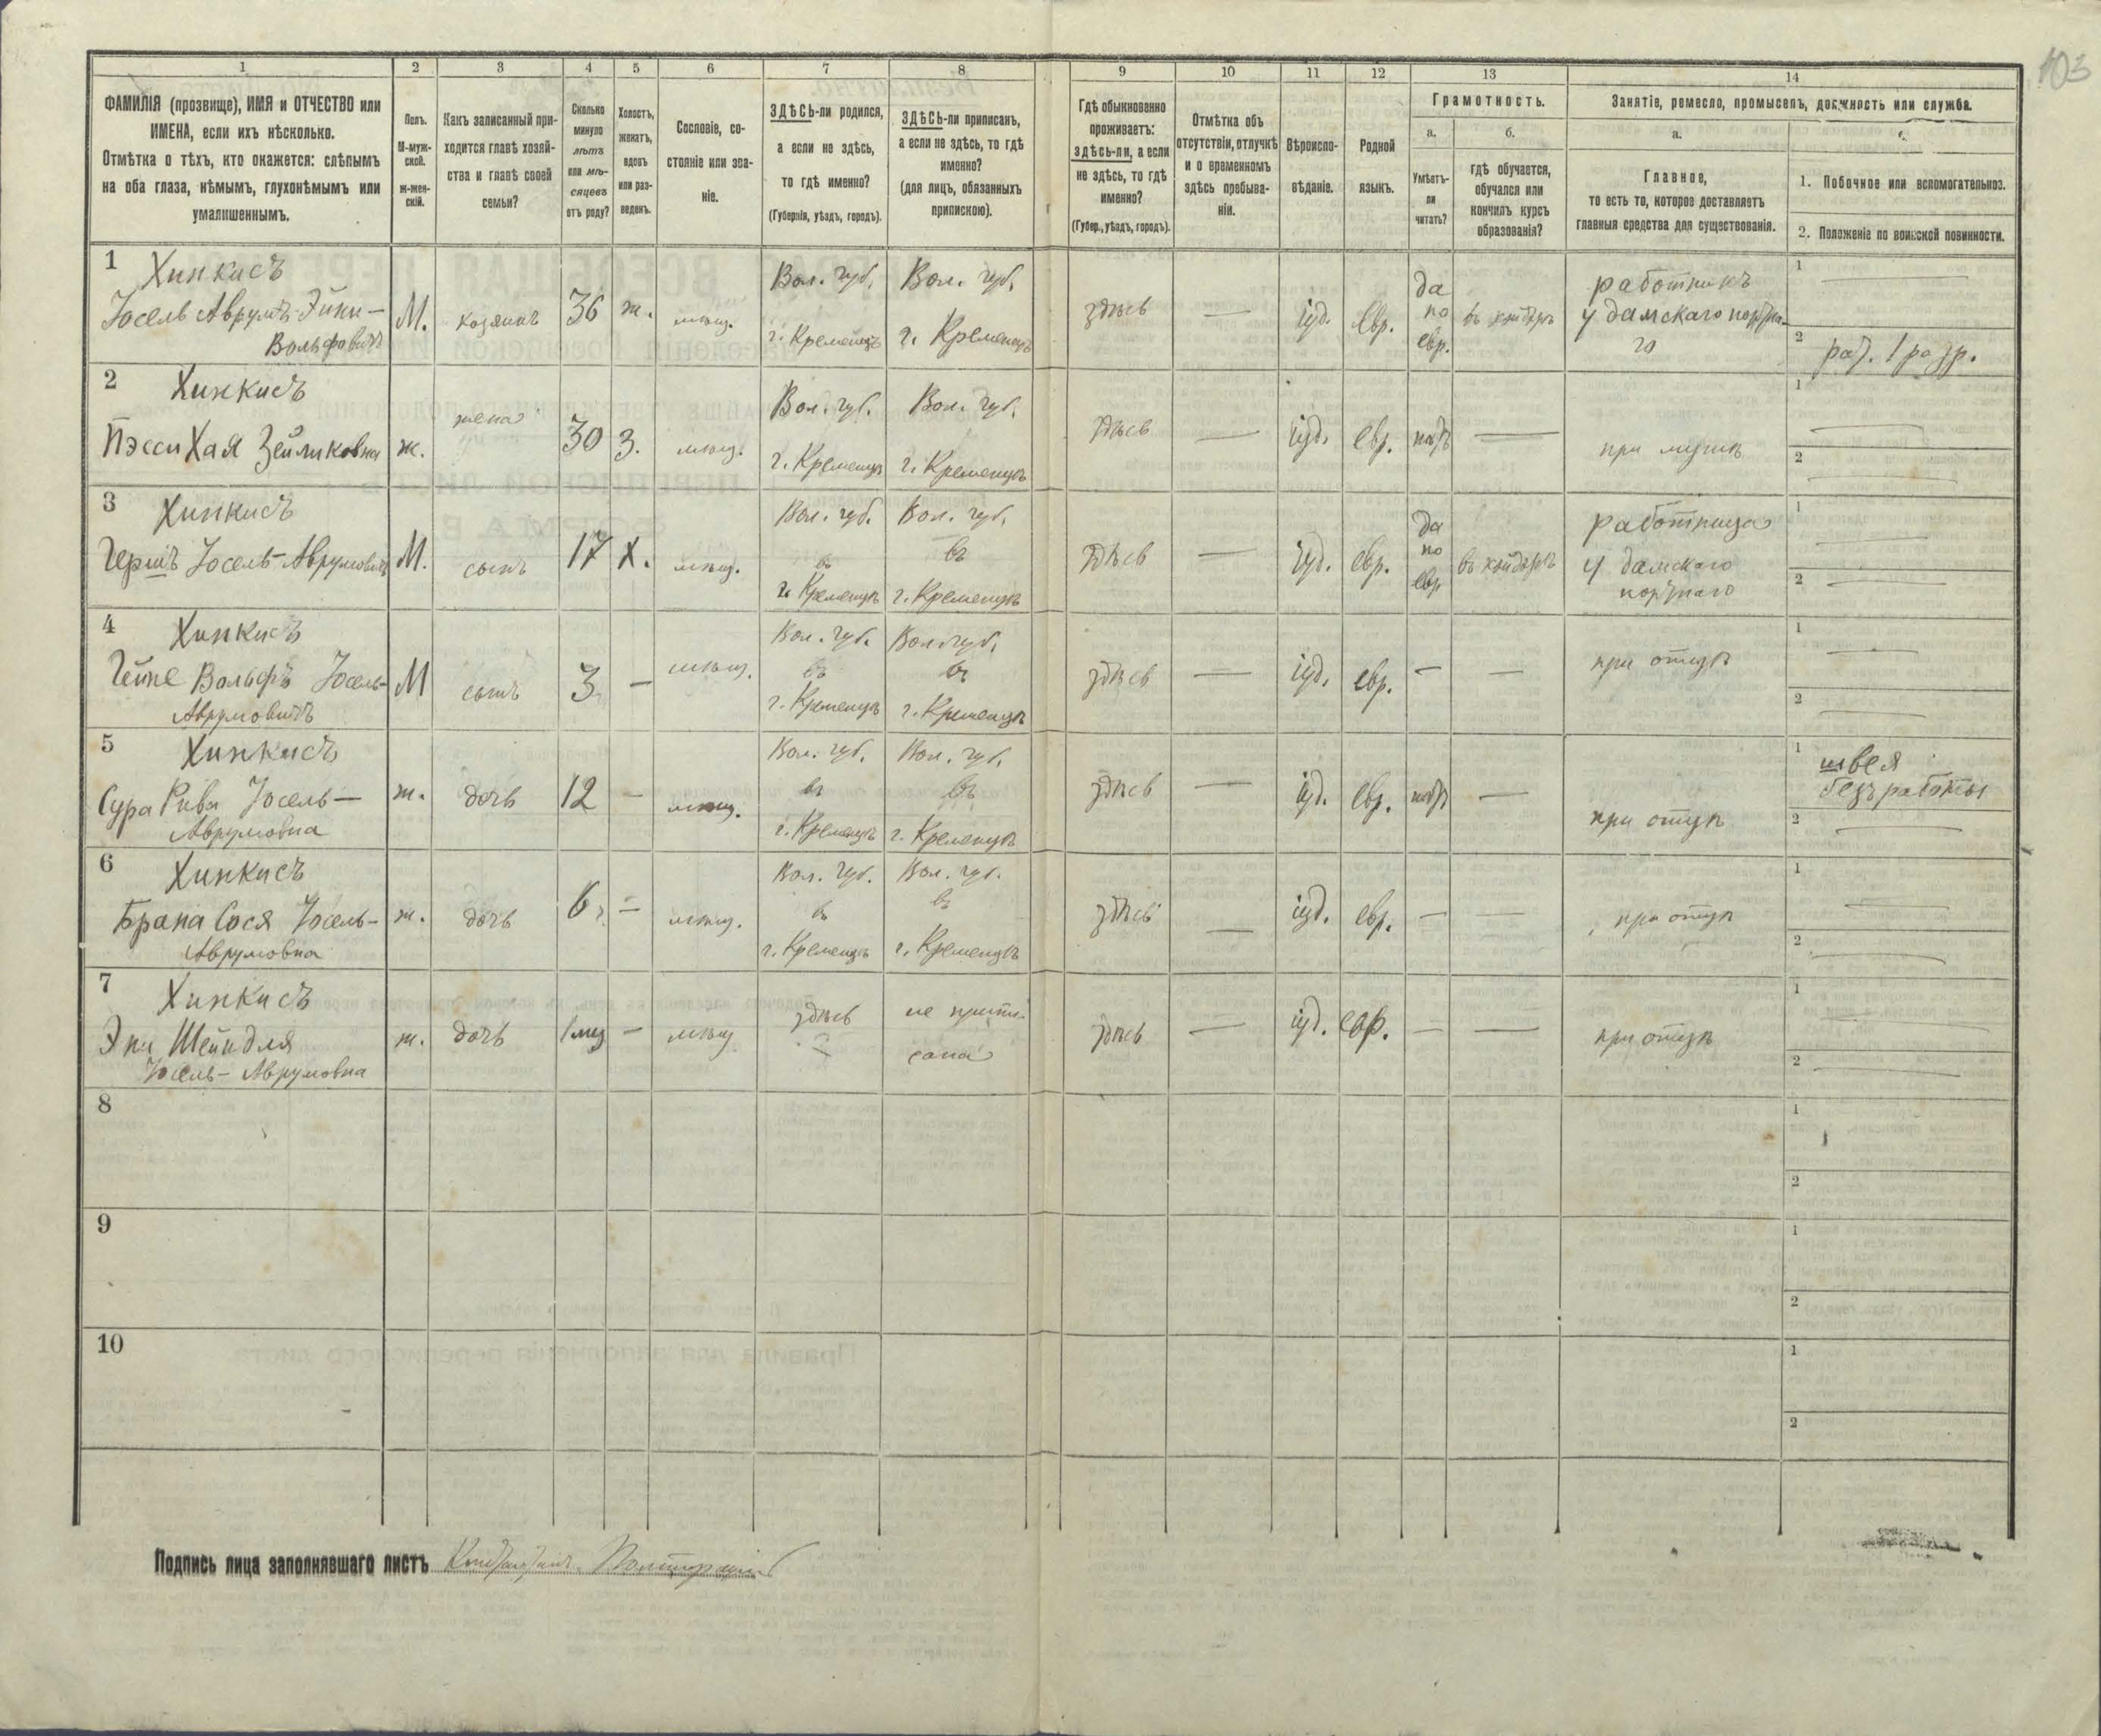 103
1
2
3
4
5
6
7
8
9
10
11
12
13
14
ФАМИЛІЯ (прозвище), ИМЯ и ОТЧЕСТВО или
ИМЕНА, если ихъ нѣсколько.
Отмѣтка о тѣхъ, кто окажется: слѣпымъ
на оба глаза, нѣмымъ, глухонѣмымъ или
умалишеннымъ.
Полъ.
М-муж-
ской.
ж-жен-
скій.
Какъ записанный при-
ходится главѣ хозяй-
ства и главѣ своей
семьи?
Сколько
минуло
лѣтъ
или мѣ-
сяцевъ
отъ роду?
Холостъ,
женатъ,
вдовъ
или раз-
веденъ.
Сословіе, со-
стояніе или зва-
ніе.
ЗДѢСЬ-ли родился,
а если не здѣсь,
то гдѣ именно?
(Губернія, уѣздъ, городъ).
ЗДѢСЬ-ли приписанъ,
а если не здѣсь, то гдѣ
именно?
(для лицъ, обязанныхъ
припискою).
Гдѣ обыкновенно
проживаетъ:
здѣсь-ли, а если
не здѣсь, то гдѣ
именно?
(Губер., уѣздъ, городъ).
Отмѣтка объ
отсутствіи, отлучкѣ
и о временномъ
здѣсь пребыва-
ніи.
Вѣроиспо-
вѣданіе.
Родной
языкъ.
Грамотность.
а.
б.
Умѣетъ-
ли
читать?
гдѣ обучается,
обучался или
кончилъ курсъ
образованія?
Занятіе, ремесло, промыселъ, должность или служба.
а.
Главное,
то есть то, которое доставляетъ
главныя средства для существованія.
1. Побочное или вспомогательное.
2. Положеніе по воинской повинности.
1 Хинкисъ
Іосель Аврумъ-Эйни-
Вольфовичъ
М. хозяинъ 36 ж. мѣщ.
Вол. губ. Вол. губ.
г. Кременцѣ г. Кременцѣ
здѣсь — іуд. евр.
да
по
евр.
въ хейдерѣ
работникъ
у дамскаго портна-
го
1 —
2 рат. 1 разр.
2 Хинкисъ
Пэсси Хая Зейликовна
ж. жена 30 З. мѣщ.
Вол. губ. Вол. губ.
г. Кременцѣ г. Кременцѣ
здѣсь — іуд. евр. нѣтъ —
при мужѣ
1 —
2 —
3 Хинкисъ
Гершъ Іосель-Аврумовичъ
М. сынъ 17 Х. мѣщ.
Вол. губ. Вол. губ.
въ въ
г. Кременцѣ г. Кременцѣ
здѣсь — іуд. евр.
да
по
евр
въ хейдерѣ
работница
у дамскаго
портнаго
1 —
2 —
4 Хинкисъ
Гейне Вольфъ Іосель-
Аврумовичъ
М сынъ 3 — мѣщ.
Вол. губ. Вол. губ.
въ въ
г. Кременцѣ г. Кременцѣ
здѣсь — іуд. евр. — —
при отцѣ
1 —
2 —
5 Хинкисъ
Сура Рива Іосель-
Аврумовна
ж. дочь 12 — мѣщ.
Вол. губ. Вол. губ.
въ въ
г. Кременцѣ г. Кременцѣ
здѣсь — іуд. евр. нѣтъ —
при отцѣ
1 швея
безъ работы
2 —
6 Хинкисъ
Брана Сося Іосель-
Аврумовна
ж. дочь 6 — мѣщ.
Вол. губ. Вол. губ.
въ въ
г. Кременцѣ г. Кременцѣ
здѣсь — іуд. евр. — —
при отцѣ
1 —
2 —
7 Хинкисъ
Эни Шейндля
Іосель-Аврумовна
ж. дочь 1 мц — мѣщ
здѣсь не припи-
сана
здѣсь — іуд. евр. — —
при отцѣ
1 —
2 —
8
1
2
9
1
2
10
1
2
Подпись лица заполнявшаго листъ